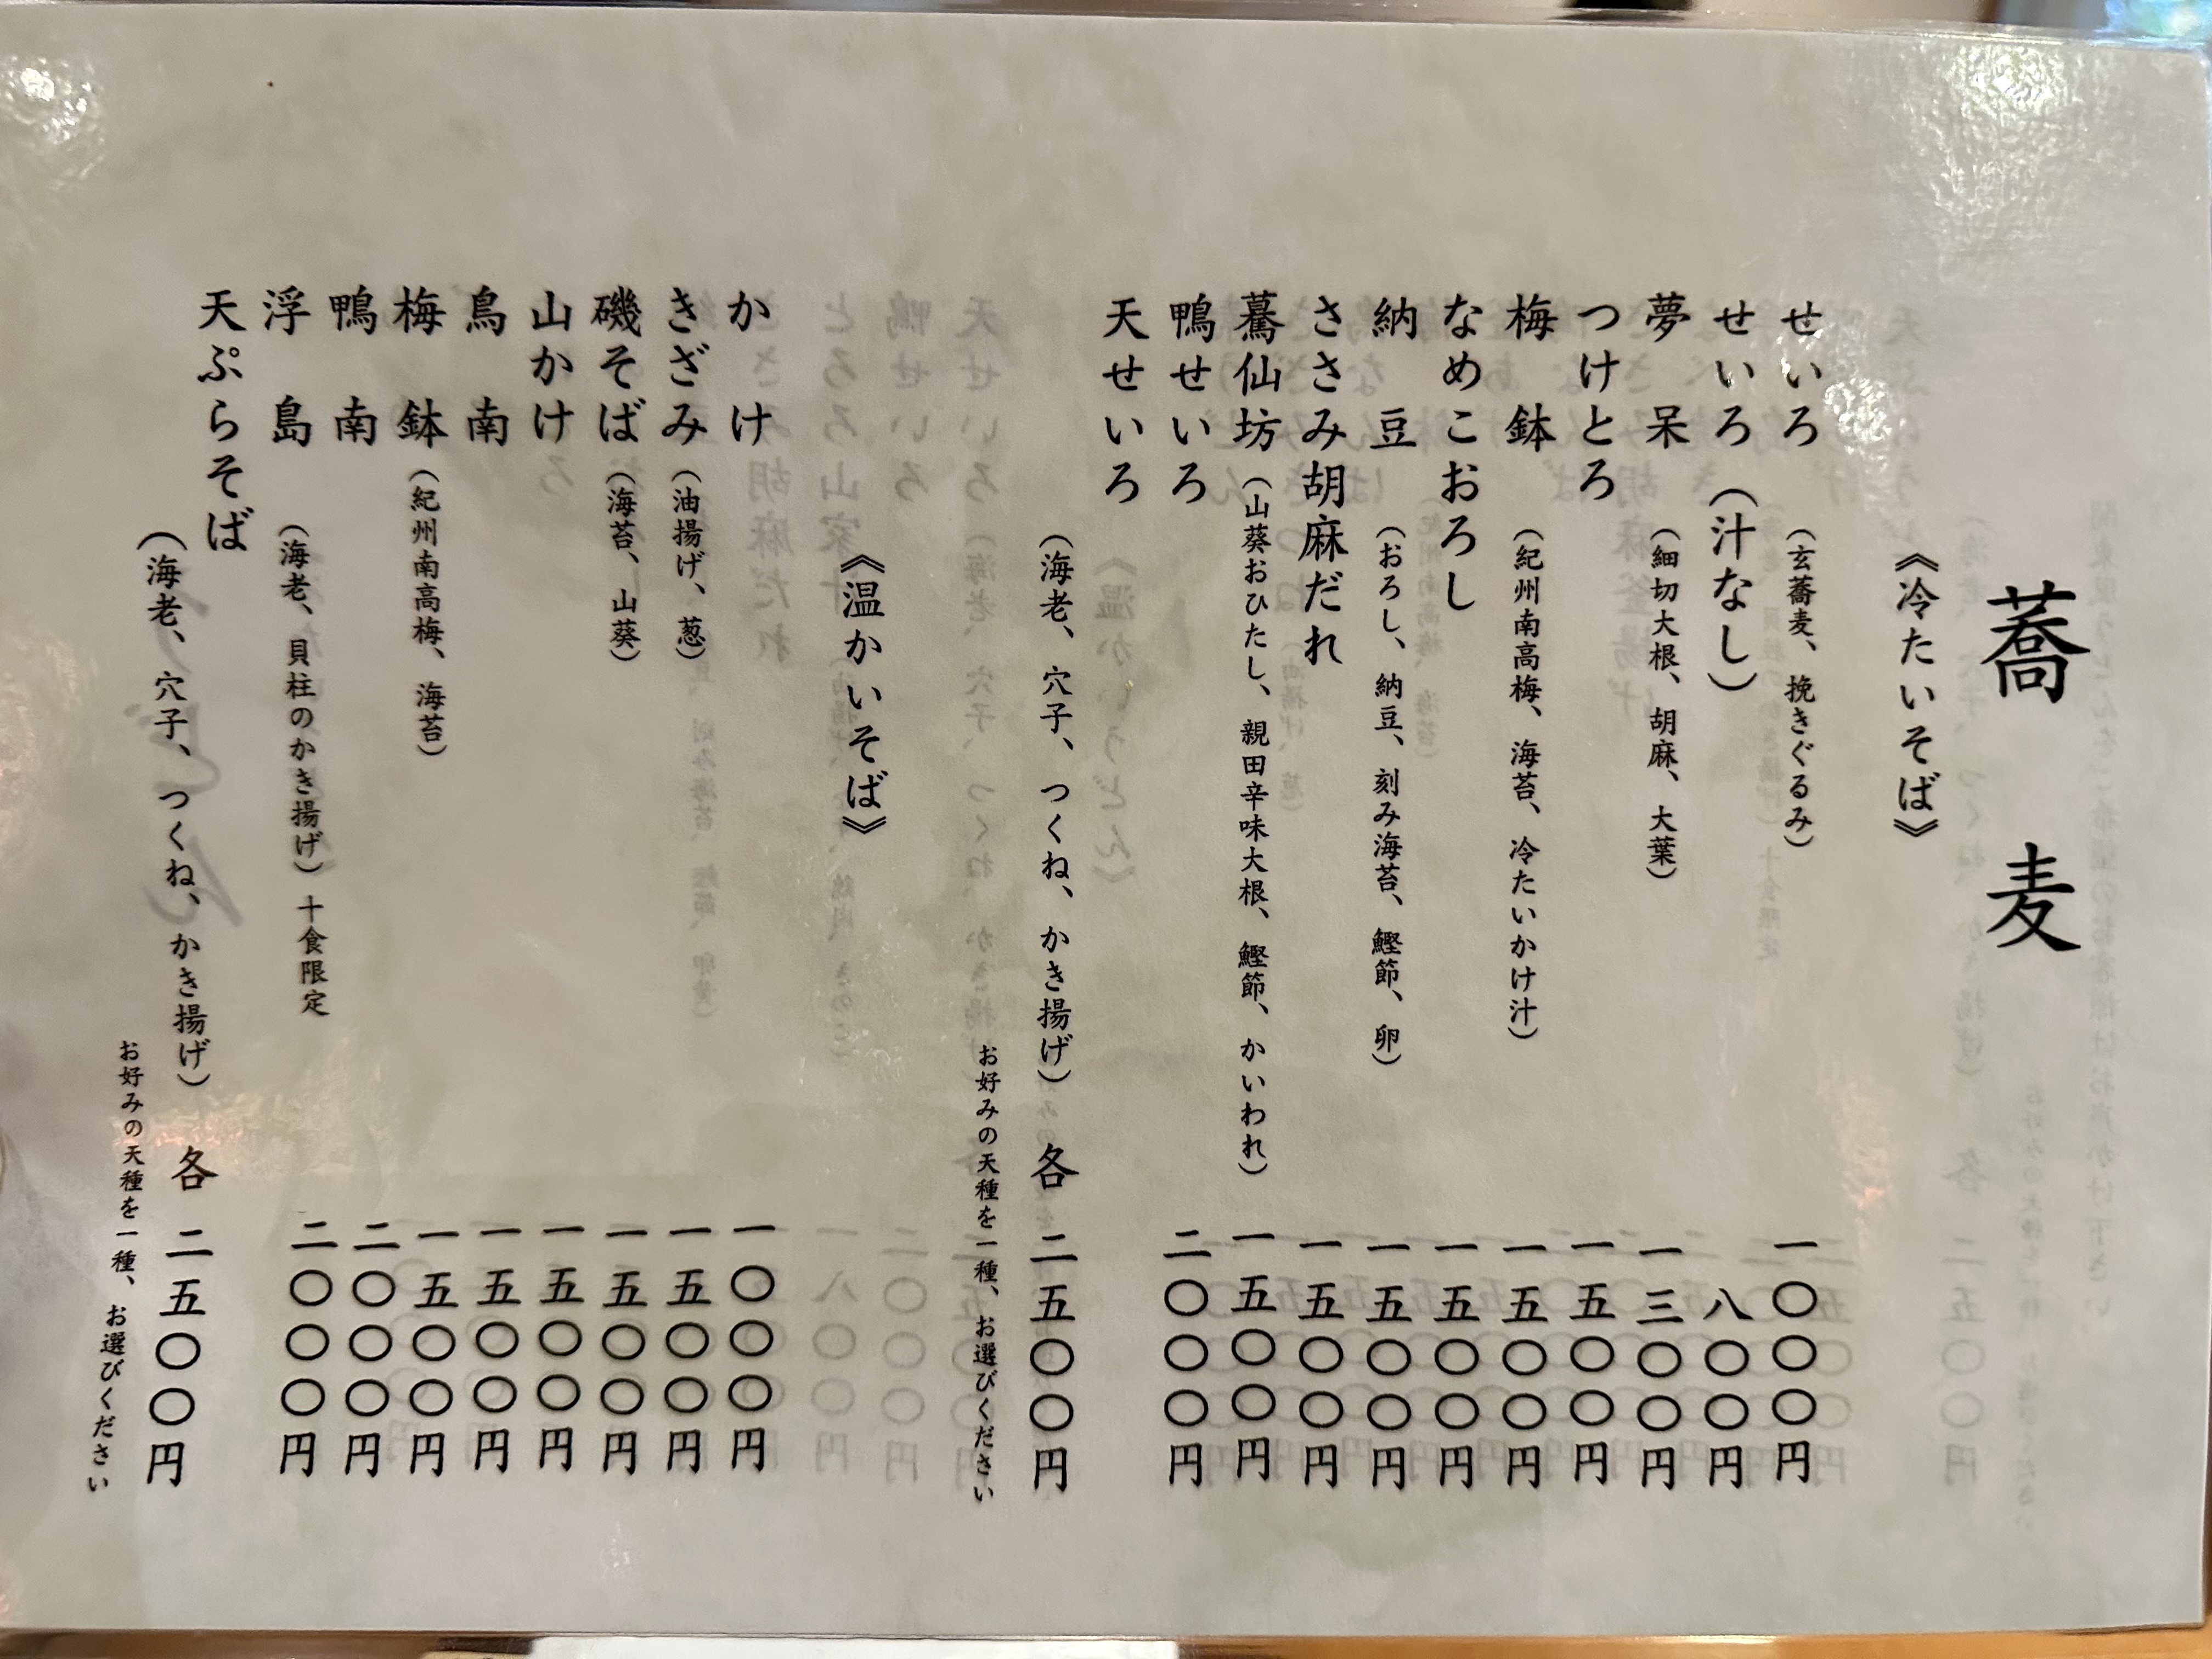 蕎麦
《冷たいそば》
せいろ（玄蕎麦、挽きぐるみ）一〇〇〇円
せいろ（汁なし）八〇〇円
夢呆（細切大根、胡麻、大葉）一三〇〇円
つけとろ 一五〇〇円
梅鉢（紀州南高梅、海苔、冷たいかけ汁）一五〇〇円
なめこおろし 一五〇〇円
納豆（おろし、納豆、刻み海苔、鰹節、卵）一五〇〇円
ささみ胡麻だれ 一五〇〇円
驀仙坊（山葵おひたし、親田辛味大根、鰹節、かいわれ）一五〇〇円
鴨せいろ 二〇〇〇円
天せいろ
（海老、穴子、つくね、かき揚げ）各 二五〇〇円
お好みの天種を一種、お選びください
《温かいそば》
かけ 一〇〇〇円
きざみ（油揚げ、葱）一五〇〇円
磯そば（海苔、山葵）一五〇〇円
山かけ 一五〇〇円
鳥南 一五〇〇円
梅鉢（紀州南高梅、海苔）一五〇〇円
鴨南 二〇〇〇円
浮島（海老、貝柱のかき揚げ）十食限定 二〇〇〇円
天ぷらそば
（海老、穴子、つくね、かき揚げ）各 二五〇〇円
お好みの天種を一種、お選びください